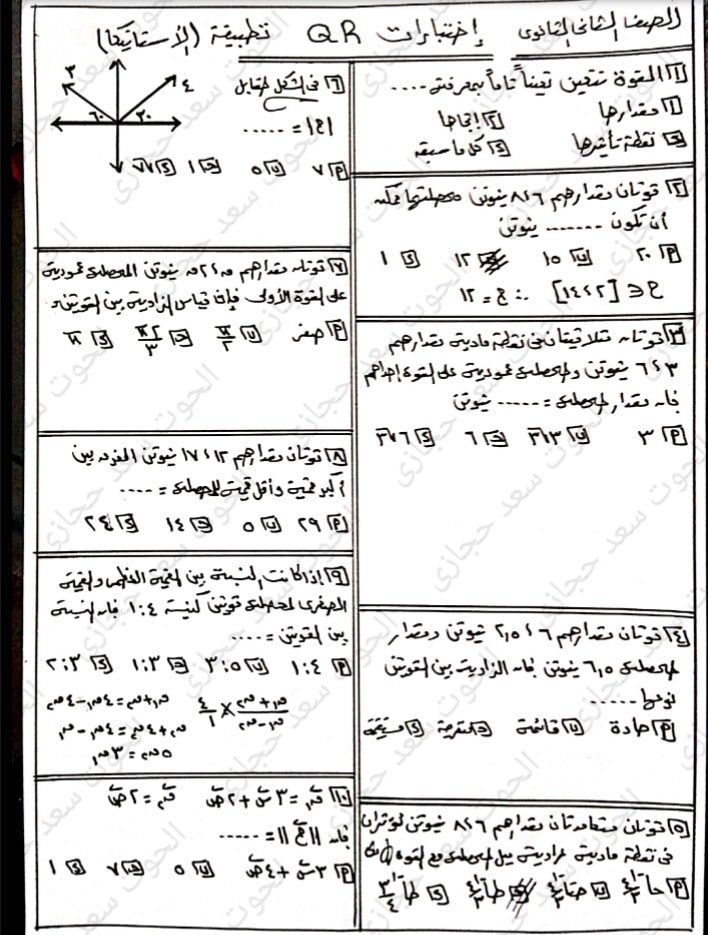 الصف الثانى الثانوى إختبارات QR تطبيقية (الأستاتيكا)
١ القوة تتعين تعيناً تاماً بمعرفة ....
أ مقدارها ب إتجاهها
ج نقطة تأثيرها د كل ما سبق
٢ قوتان مقدارهم ٦، ٨ نيوتن محصلتهما يمكن
أن تكون ....... نيوتن
أ ٢٠ ب ١٥ ج ١٢ د ١
ح ∈ [٢، ١٤] ∴ ح = ١٢
٣ قوتان متلاقيتان فى نقطة مادية مقدارهم
٣، ٦ نيوتن والمحصلة عمودية على القوة إحداهم
فإن مقدار المحصلة = ..... نيوتن
أ ٣ ب ٣√٣ ج ٦ د ٦√٣
٤ قوتان مقدارهم ٦، ٢٫٥ نيوتن ومقدار
المحصلة ٦٫٥ نيوتن فإن الزاوية بين القوتين
نوعها ......
أ حادة ب قائمة ج منفرجة د مستقيمة
٥ قوتان متعامدتان مقدارهم ٦، ٨ نيوتن تؤثران
فى نقطة مادية فزاوية ميل المحصلة مع القوة الأولى
أ جا⁻¹ ٤/٣ ب جتا⁻¹ ٤/٣ ج ظا⁻¹ ٤/٣ د ظا⁻¹ ٣/٤
٦ فى الشكل المقابل
٣ ٤ ٦٠ ٣٠
|ح| = .....
أ ٧ ب ٥ ج ١ د √٧
٧ قوتان مقدارهم ق، ٢ق نيوتن المحصلة عمودية
على القوة الأولى فإن قياس الزاوية بين القوتين =
أ صفر ب π/٢ ج ٢π/٣ د π
٨ قوتان مقدارهم ١٢، ١٧ نيوتن الفرق بين
أكبر قيمة وأقل قيمة للمحصلة = ....
أ ٢٩ ب ٥ ج ١٤ د ٢٤
٩ إذا كانت النسبة بين القيمة العظمى والقيمة
الصغرى لمحصلة قوتين كنسبة ٤:١ فإن النسبة
بين القوتين = ....
أ ٤:١ ب ٥:٣ ج ٣:١ د ٣:٢
ق١+ق٢ / ق١-ق٢ × ٤/١ ق١+ق٢=٤ق١-٤ق٢
ق٢+٤ق٢=٤ق١-ق١
٥ق٢=٣ق١
١٠ ق١ = ٣س + ٢ص ق٢ = ٢ص
فإن ||ح|| = .....
أ ٣س + ٤ص ب ٥ ج ٧ د ١
الحوت سعد حجازى